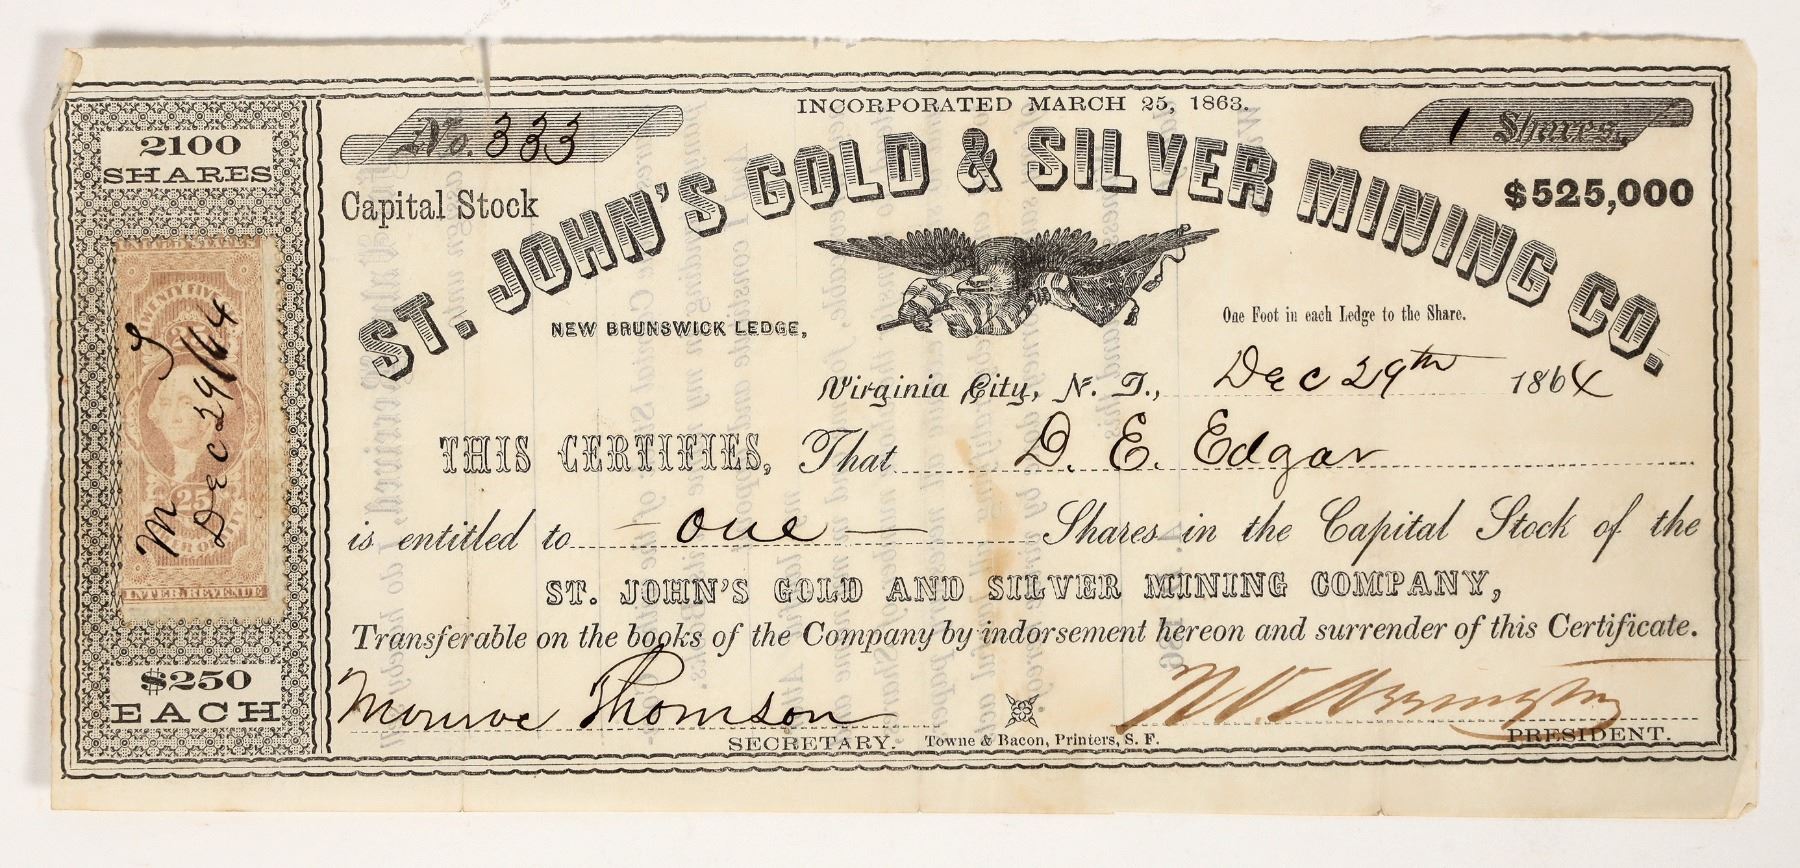 INCORPORATED MARCH 25, 1863.
No. 333
1 Shares.
2100
SHARES
Capital Stock
$525,000
ST. JOHN'S GOLD & SILVER MINING CO.
NEW BRUNSWICK LEDGE,
One Foot in each Ledge to the Share.
Virginia City, N. T., Dec 29th 1864
THIS CERTIFIES, That D. E. Edgar
is entitled to one Shares in the Capital Stock of the
ST. JOHN'S GOLD AND SILVER MINING COMPANY,
Transferable on the books of the Company by indorsement hereon and surrender of this Certificate.
Monroe Thomson
SECRETARY.
Towne & Bacon, Printers, S. F.
PRESIDENT.
UNITED STATES
TWENTY FIVE
25
25
INTER. REVENUE
M T
Dec 29/64
$250
EACH